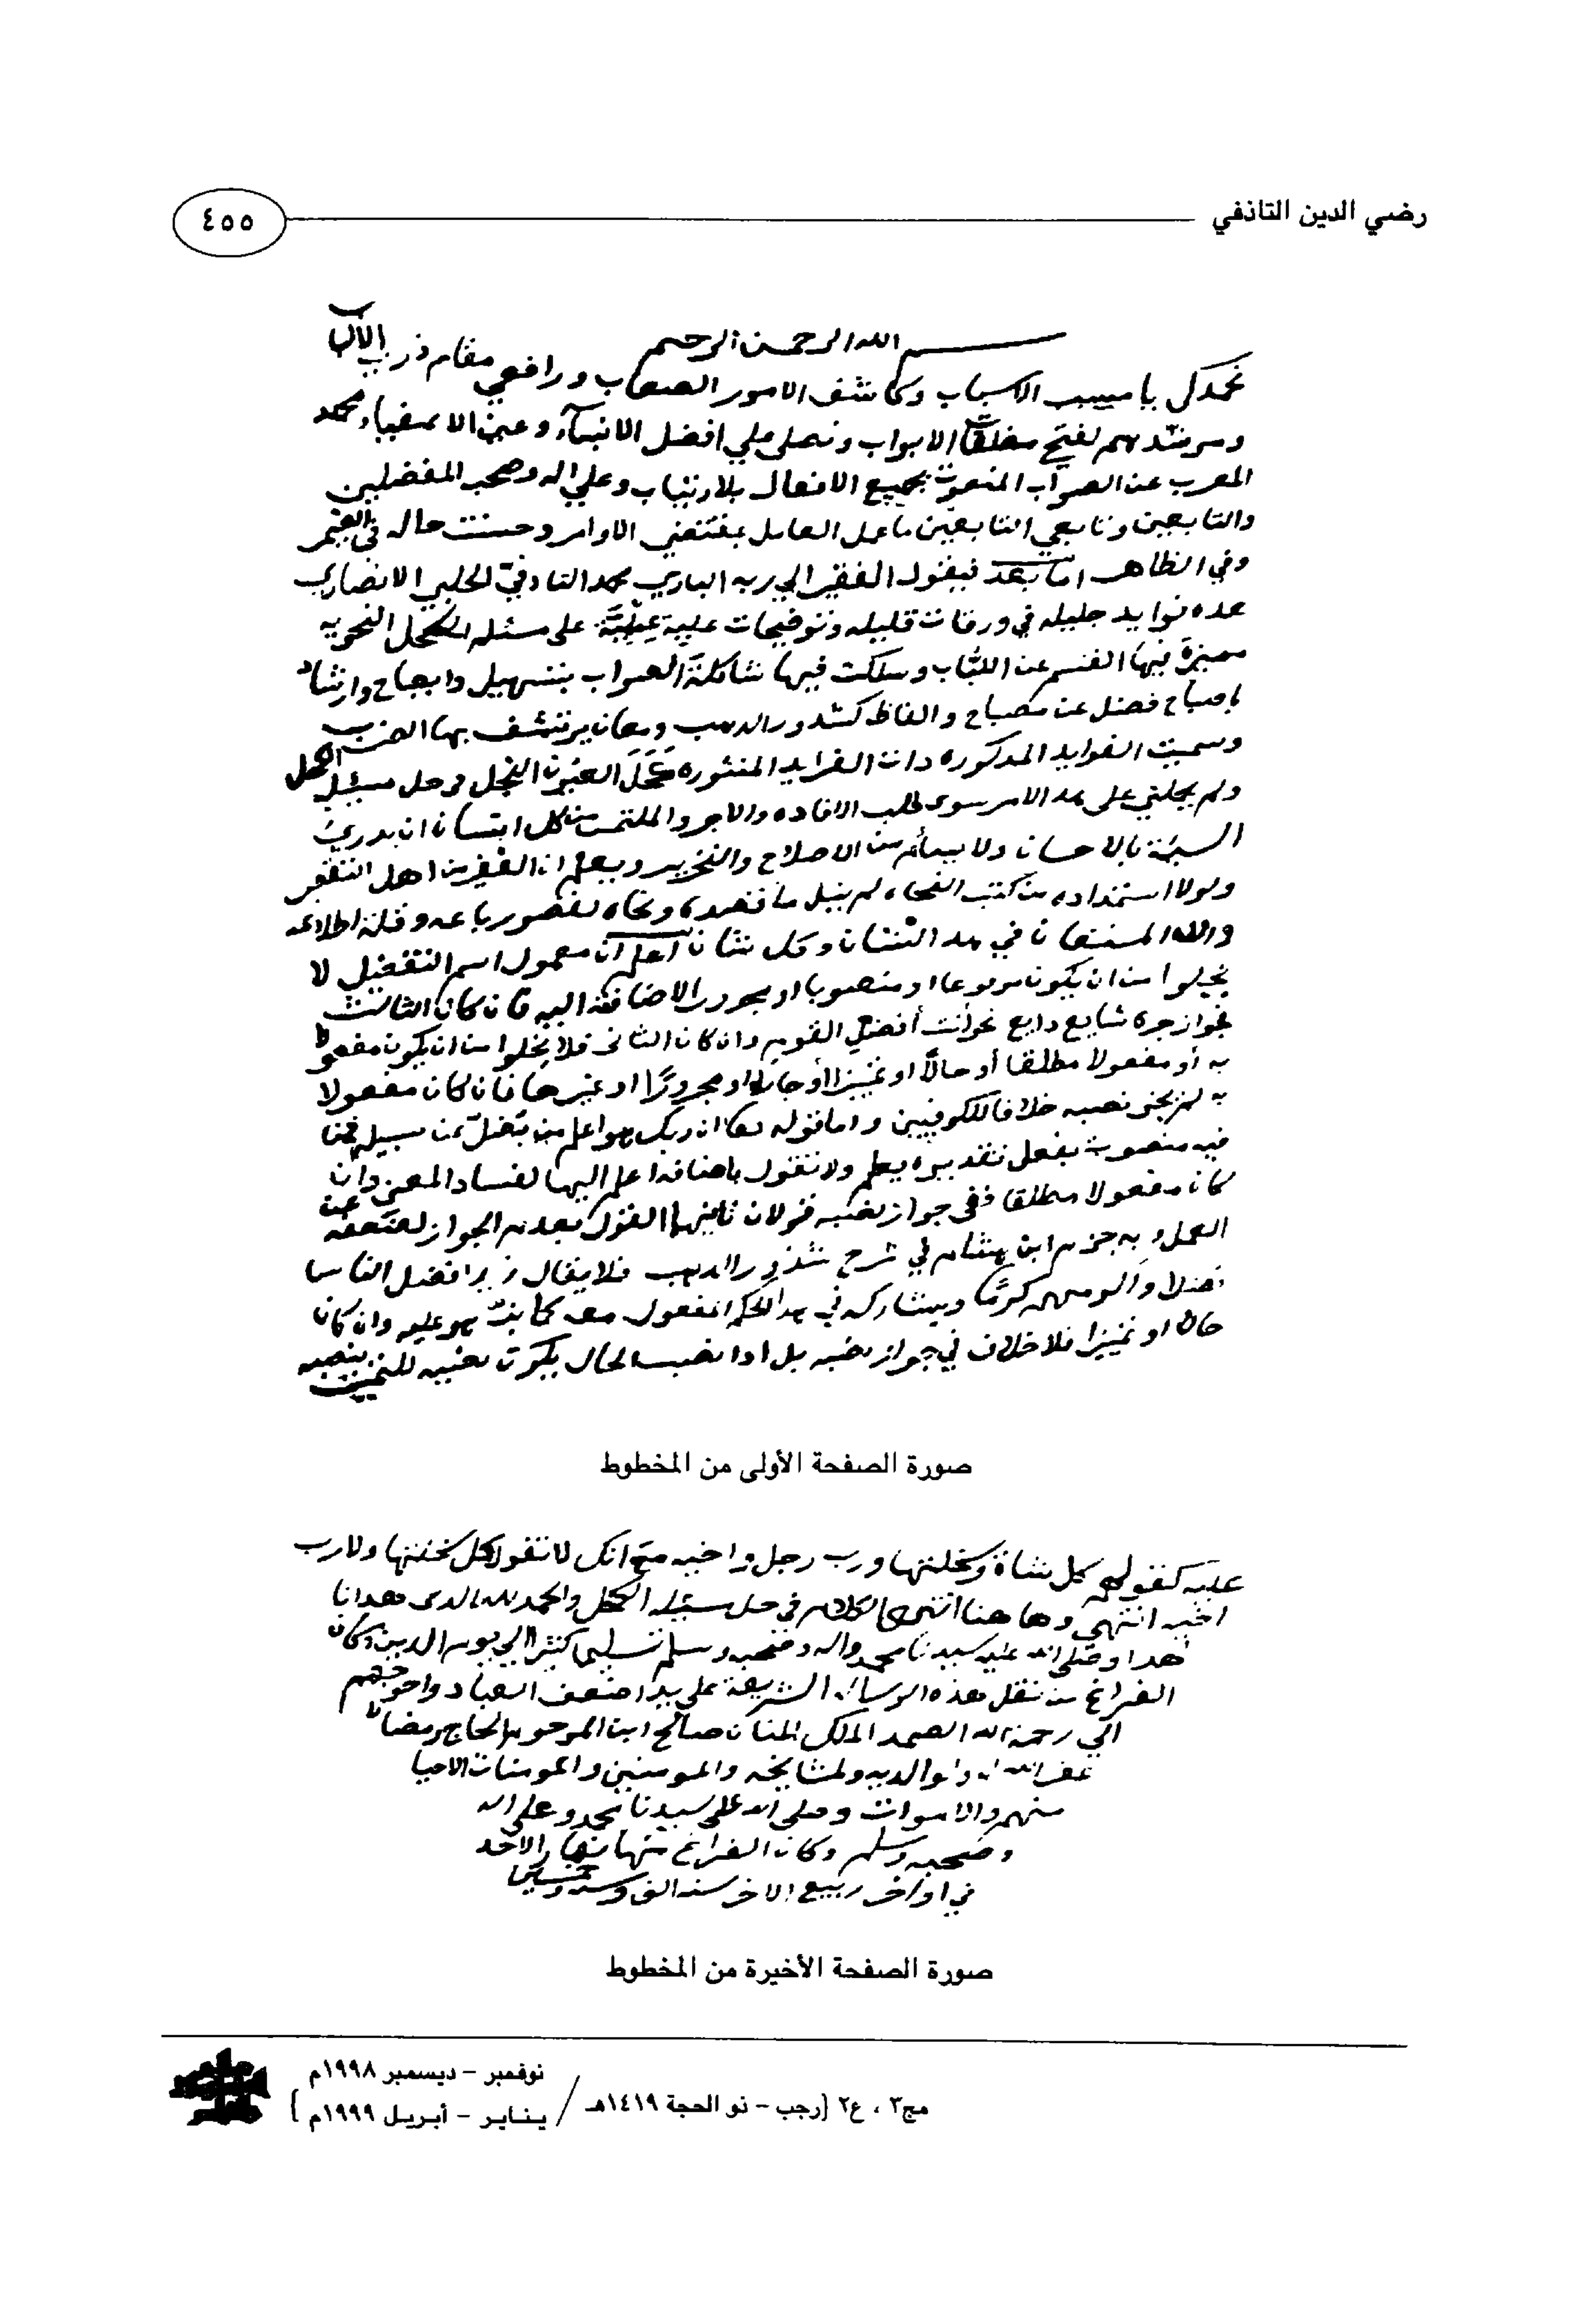 رضي الدين التاذفي
٤٥٥
بسم الله الرحمن الرحيم
نحمدك يا مسبب الاسباب وكاشف الامور الصعاب ورافعي مقام ذوي الألباب
ومرشدهم لفتح مغلقات الابواب ونصلي علي افضل الانبيآء وعين الاصفياء محمد
المعرب عن الصواب المنعوت بجميع الافعال بلا ارتياب وعلي اله وصحبه المفضلين
والتابعين وتابعي التابعين ما عمل العامل بمقتضي الاوامر وحسنت حاله في الضمير
وفي الظاهر اما بعد فيقول الفقير الي ربه الباري محمد التادفيّ الحلبي الانصاري
هده فوايد جليله في ورقات قليله وتوضيحات علي مسئله الكحل النحويه
مميزة فيها القشر عن اللُّباب وسلكت فيها شاكلة الصواب بتسهيل وايضاح وارشاد
باصباح فضل عن مصباح والفاظ كشدور الدهب ومعان يرتشف بها الضرب
وسميت الفوايد المدكوره دات الفرايد المنثوره كَحَلَ العيون النجل في حل مسئله الكحل
ولم يحملني على هدا الامر سوى طلب الافاده والاجر والملتمس من كل انسان ان يدري
السيئة بالاحسان ولا يسأم من الاصلاح والتحرير ويعلم ان الفقير من اهل التقصير
ولولا استمداده من كتب النحاه لم ينل ما قصده ونحاه لقصور باعه وقلة اطلاعه
والله المستعان في هدا الشان وكل شان اعلم ان معمول اسم التفضيل لا
يخلوا من ان يكون مرفوعا او منصوبا او مجرورا بالاضافة اليه فان كان الثالث
فجواز جره شايع دايع نحو أنت أفضل القوم وان كان الثاني فلا يخلوا من ان يكون مفعولا
به أو مفعولا مطلقا أو حالاً او تمييزا أو جارا او مجرورًا او غيرها فان كان مفعولا
به لم يجز نصبه خلافا للكوفيين واما قوله تعا ان ربك هو اعلم من يَضل عن سبيله فمن
فيه منصوب بفعل تقديره يعلم ولا نقول باضافة اعلم اليها لفساد المعنى وان
كان مفعولا مطلقا ففي جواز نصبه قولان ثانيهما القول بعدم الجواز لضعفه عن
العمل وبه جزم ابن هشام في شرح شدور الدهب فلا يقال زيد افضل الناس
فضلا واكرمهم كرمًا ويشاركه في هدا الحكم المفعول معه كما نبّه هو عليه وان كان
حالا او تمييزا فلا خلاف في جواز نصبه بل ادا نصب الحال يكون نصبه للتمييز
صورة الصفحة الأولى من المخطوط
عليه كقولهم كل شاة وسخلتها ورب رجل واخيه مع انك لا تقول كل سخلتها ولا رب
اخيه انتهى وها هنا انتهى الكلام في حل مسئله الكحل والحمد لله الدى هدانا
لهدا وصلى الله على سيدنا محمد واله وصحبه وسلم تسليما كثيرا الي يوم الدين وكان
الفراغ من نقل هذه الرساله الشريفة علي يد اضعف العباد واحوجهم
الي رحمة الله الصمد الملك المنان صالح ابن المرحوم الحاج رمضان
غفر الله له ولوالديه ولمشايخه والمومنين والمومنات الاحيا
منهم والاموات وصلى الله على سيدنا محمد وعلى اله
وصحبه وسلم وكان الفراغ منها نهار الاحد
في اواخر ربيع الاخر سنه الف
صورة الصفحة الأخيرة من المخطوط
مج٣ ، ع٢ [رجب - ذو الحجة ١٤١٩هـ / نوفمبر - ديسمبر ١٩٩٨م
يناير - أبريل ١٩٩٩م]